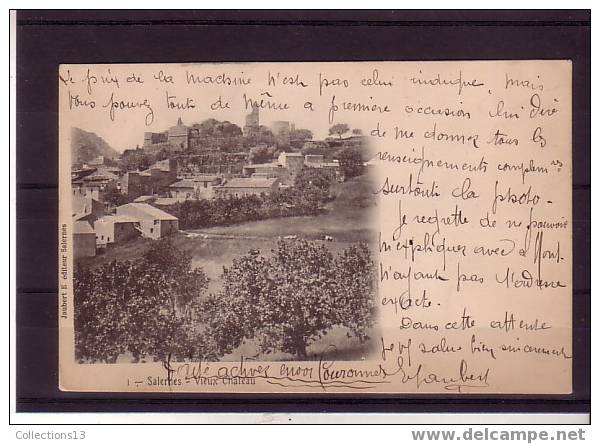 Le prix de la machine n'est pas celui indiqué, mais
vous pouvez tout de même à première occasion lui dire
de me donner tous les
renseignements complem res
surtout la photo.
Je regrette de ne pouvoir
m'expliquer avec Mont
n'ayant pas l'adresse
exacte.
Dans cette attente
je vs salue bien sincèrement
activez envoi Couronnes EJaubert
Jaubert E éditeur Salernes
1 — Salernes - Vieux Château
Collections13
www.delcampe.net